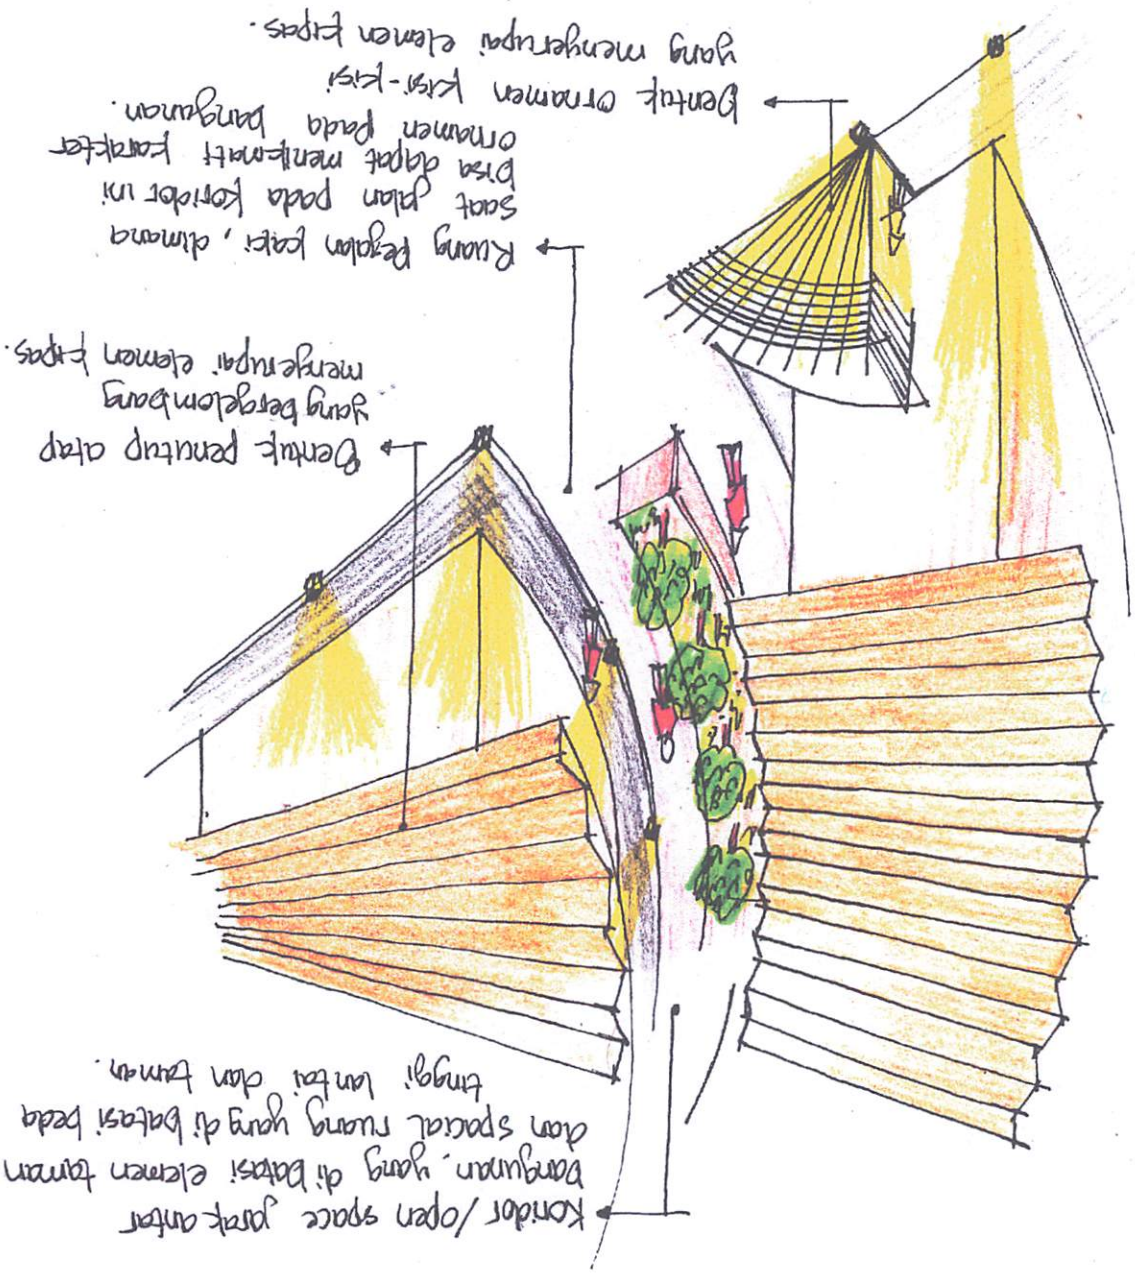 Koridor /open space jarak antar
bangunan, yang di batasi elemen taman
dan spacial ruang yang di batasi beda
tinggi lantai dan taman.
Bentuk penutup atap
yang bergelombang
mengerupai elemen kipas.
Ruang Pejalan kaki, dimana
saat jalan pada koridor ini
bisa dapat menikmati karakter
ornamen pada bangunan.
Bentuk ornamen kisi-kisi
yang mengerupai elemen kipas.